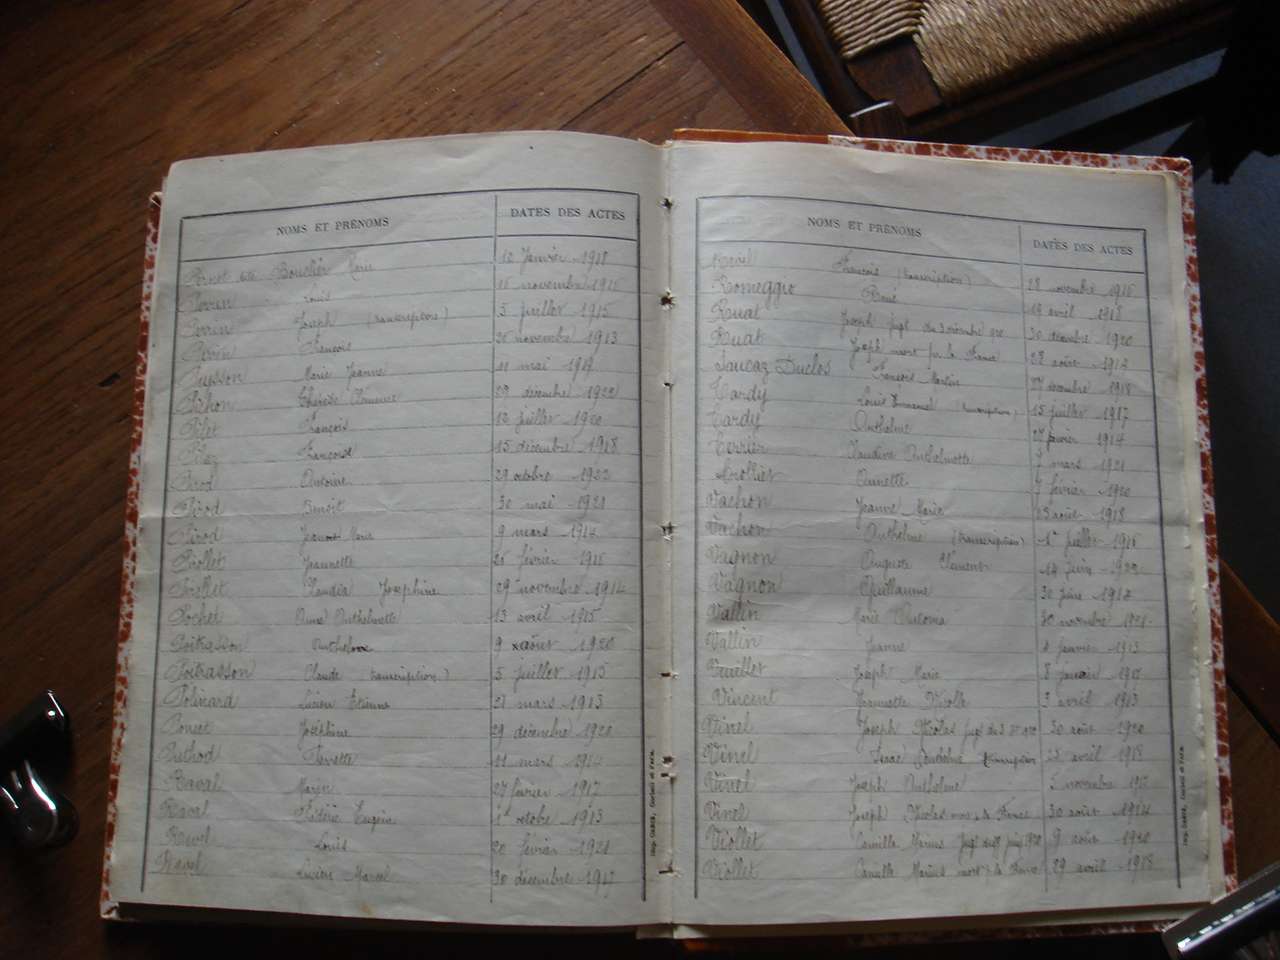 NOMS ET PRÉNOMS DATES DES ACTES
Perret née Boucher Marie 12 Janvier 1918
Perrin Louis 16 novembre 1916
Perrin Joseph (transcription) 5 juillet 1915
Perrin François 25 novembre 1913
Marie Jeanne 11 mai 1917
Pichon Thérèse Clémence 29 décembre 1922
Pilet François 12 juillet 1920
Françoise 15 décembre 1918
Pirod Antoine 29 octobre 1922
Pirod Benoit 30 mai 1921
Pirod Jeanne Marie 9 mars 1914
Piollet Jeannette 25 février 1916
Piollet Claudia Joséphine 29 novembre 1914
Pochet Anne Anthelmette 13 avril 1915
Poitrasson Anthelme 9 août 1920
Poitrasson Claude transcription) 5 juillet 1915
Polinard Lucien Etienne 21 mars 1913
Poncet Joséphine 29 décembre 1920
Puthod Pierrette 11 mars 1914
Ravel 27 février 1917
Ravel Eugène 1er octobre 1913
Ravel Louis 20 février 1921
Ravel Lucien Marcel 30 décembre 1917
Imp. Carus, Corbeil et Paris.
NOMS ET PRÉNOMS DATES DES ACTES
Ravel François (transcription) 28 novembre 1916
Romeggio René 19 avril 1918
Ruat Joseph jugt du 3 décembre 1920 30 décembre 1920
Ruat Joseph mort pr la France 28 août 1914
Saucaz Duclos François Martin 27 décembre 1918
Tardy Louis Emmanuel (transcription) 15 juillet 1917
Tardy Anthelme 27 février 1914
Terrier Claudine Anthelmette 7 mars 1921
Annette 7 février 1920
Vachon Jeanne Marie 23 août 1918
Vachon Anthelme (transcription) 1er juillet 1916
Vagnon Auguste Clément 14 juin 1922
Vagnon Guillaume 30 1914
Vallin Marie Antonia 30 novembre 1921
Vallin Jeanne 4 janvier 1913
Vuillet Joseph Marie 8 janvier 1917
Vincent Jeannette Nicolle 3 avril 1913
Vinel Joseph Nicolas jugt du 30 août 1920
Vinel Isaac Anthelme transcription 25 avril 1918
Vinel Joseph Anthelme 5 novembre 1915
Vinel Joseph Nicolas mort p. la France 30 août 1914
Viollet Camille Marius jugt du 9 août 1920
Viollet Camille Marius mort p la France 29 avril 1918
Imp. Carus, Corbeil et Paris.